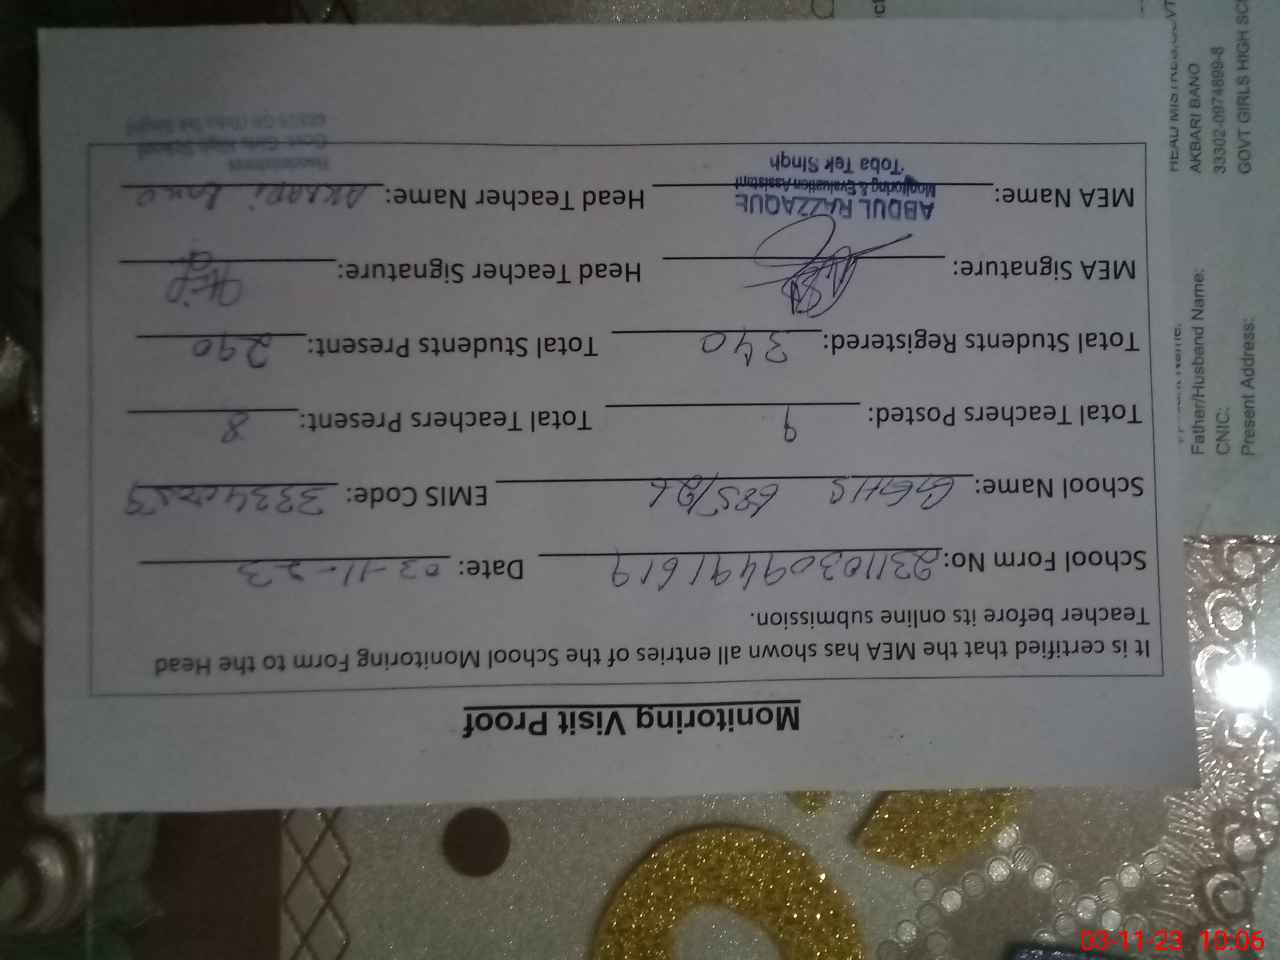 Monitoring Visit Proof
It is certified that the MEA has shown all entries of the School Monitoring Form to the Head
Teacher before its online submission.
School Form No: 23110309491619 Date: 03-11-23
School Name: GGHS 685/26 EMIS Code:
Total Teachers Posted: 9 Total Teachers Present: 8
Total Students Registered: 340 Total Students Present: 290
MEA Signature: Head Teacher Signature:
MEA Name: ABDUL RAZZAQUE Head Teacher Name: AKBARI Bano
Monitoring & Evaluation Assistant
Toba Tek Singh
Headmistress
Govt. Girls High School
AKBARI BANO
33302-0974899-8
GOVT GIRLS HIGH SC
Father/Husband Name:
CNIC:
Present Address:
03-11-23 10:06